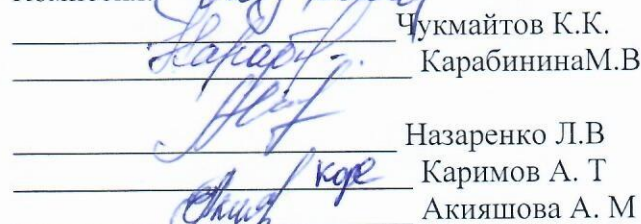 Чукмайтов К.К.
КарабининаМ.В
Назаренко Л.В
Каримов А. Т
Акияшова А. М